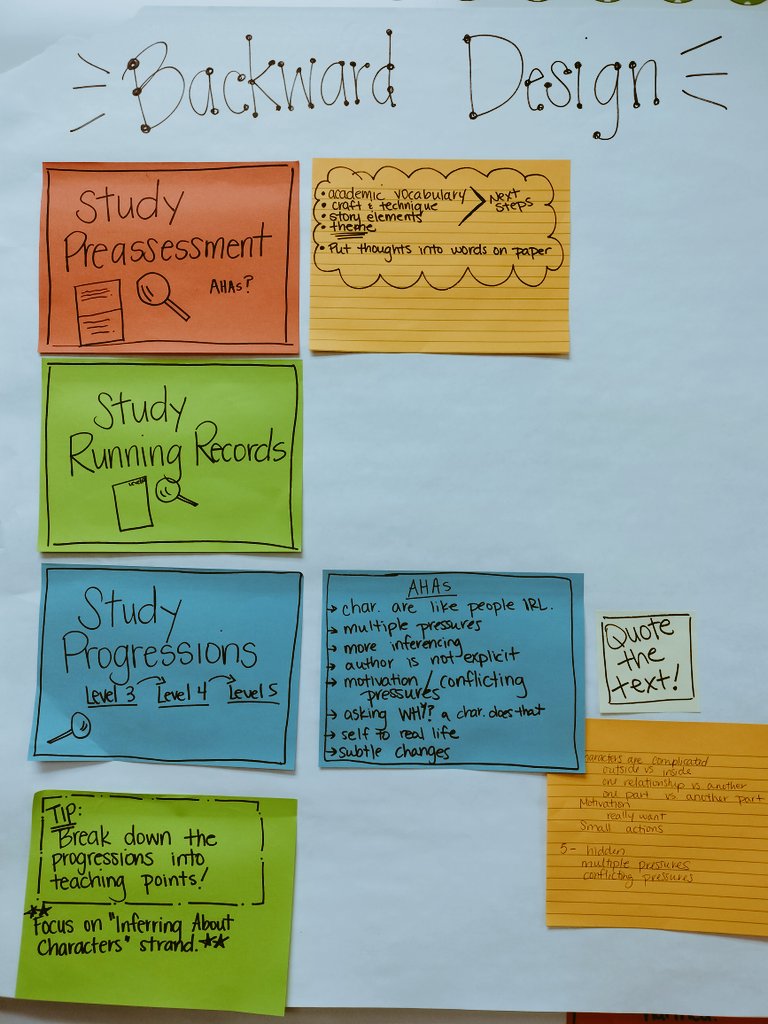 Backward Design
Study
Preassessment
AHAs?
• academic vocabulary
• craft & technique
• story elements
• theme
Next
Steps
• Put thoughts into words on paper
Study
Running Records
Study
Progressions
Level 3 Level 4 Level 5
AHAs
→ char. are like people IRL.
→ multiple pressures
→ more inferencing
→ author is not explicit
→ motivation / conflicting
pressures
→ asking WHY? a char. does that
→ self to real life
→ subtle changes
Quote
the
text!
characters are complicated
outside vs inside
one relationship vs another
one part vs. another part
Motivation
really want
Small actions
5- hidden
multiple pressures
conflicting pressures
TIP:
Break down the
progressions into
teaching points!
**Focus on "Inferring About
Characters" strand.**